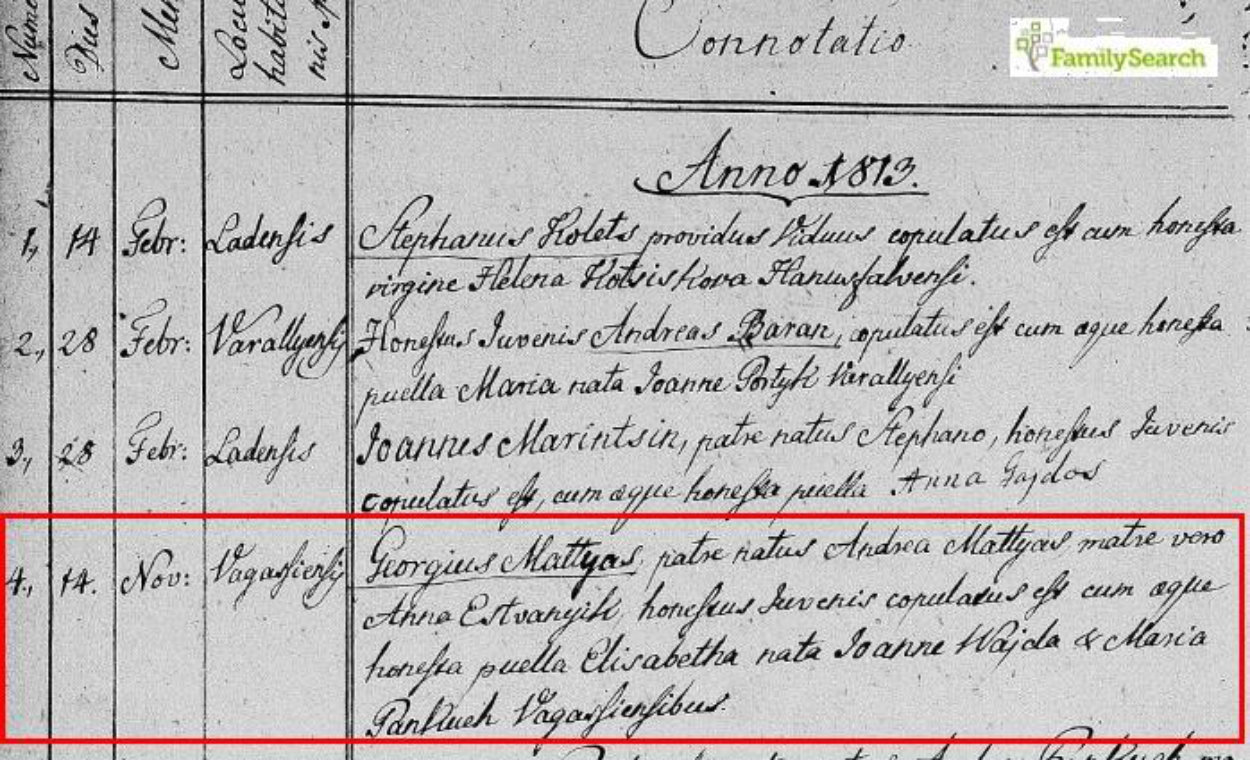 Nume
Dius
Men
Locus
habita
nis
Connotatio
FamilySearch
Anno 1813.
1, 14 Febr: Ladensis Stephanus Kolets providus Viduus copulatus est cum honesta
virgine Helena Kotsiskova Hanusfalvensi.
2, 28 Febr: Varallyensis Honestus Iuvenis Andreas Baran, copulatus est cum æque honesta
puella Maria nata Ioanne Portyk Varallyensi
3, 28 Febr: Ladensis Ioannes Marintsin, patre natus Stephano, honestus Iuvenis
copulatus est, cum æque honesta puella Anna Gajdos
4, 14. Nov: Vagassiensis Georgius Mattyas, patre natus Andrea Mattyas, matre vero
Anna Estvanyik, honestus Iuvenis copulatus est cum æque
honesta puella Elisabetha nata Ioanne Wajda & Maria
Pankuch Vagassiensibus.